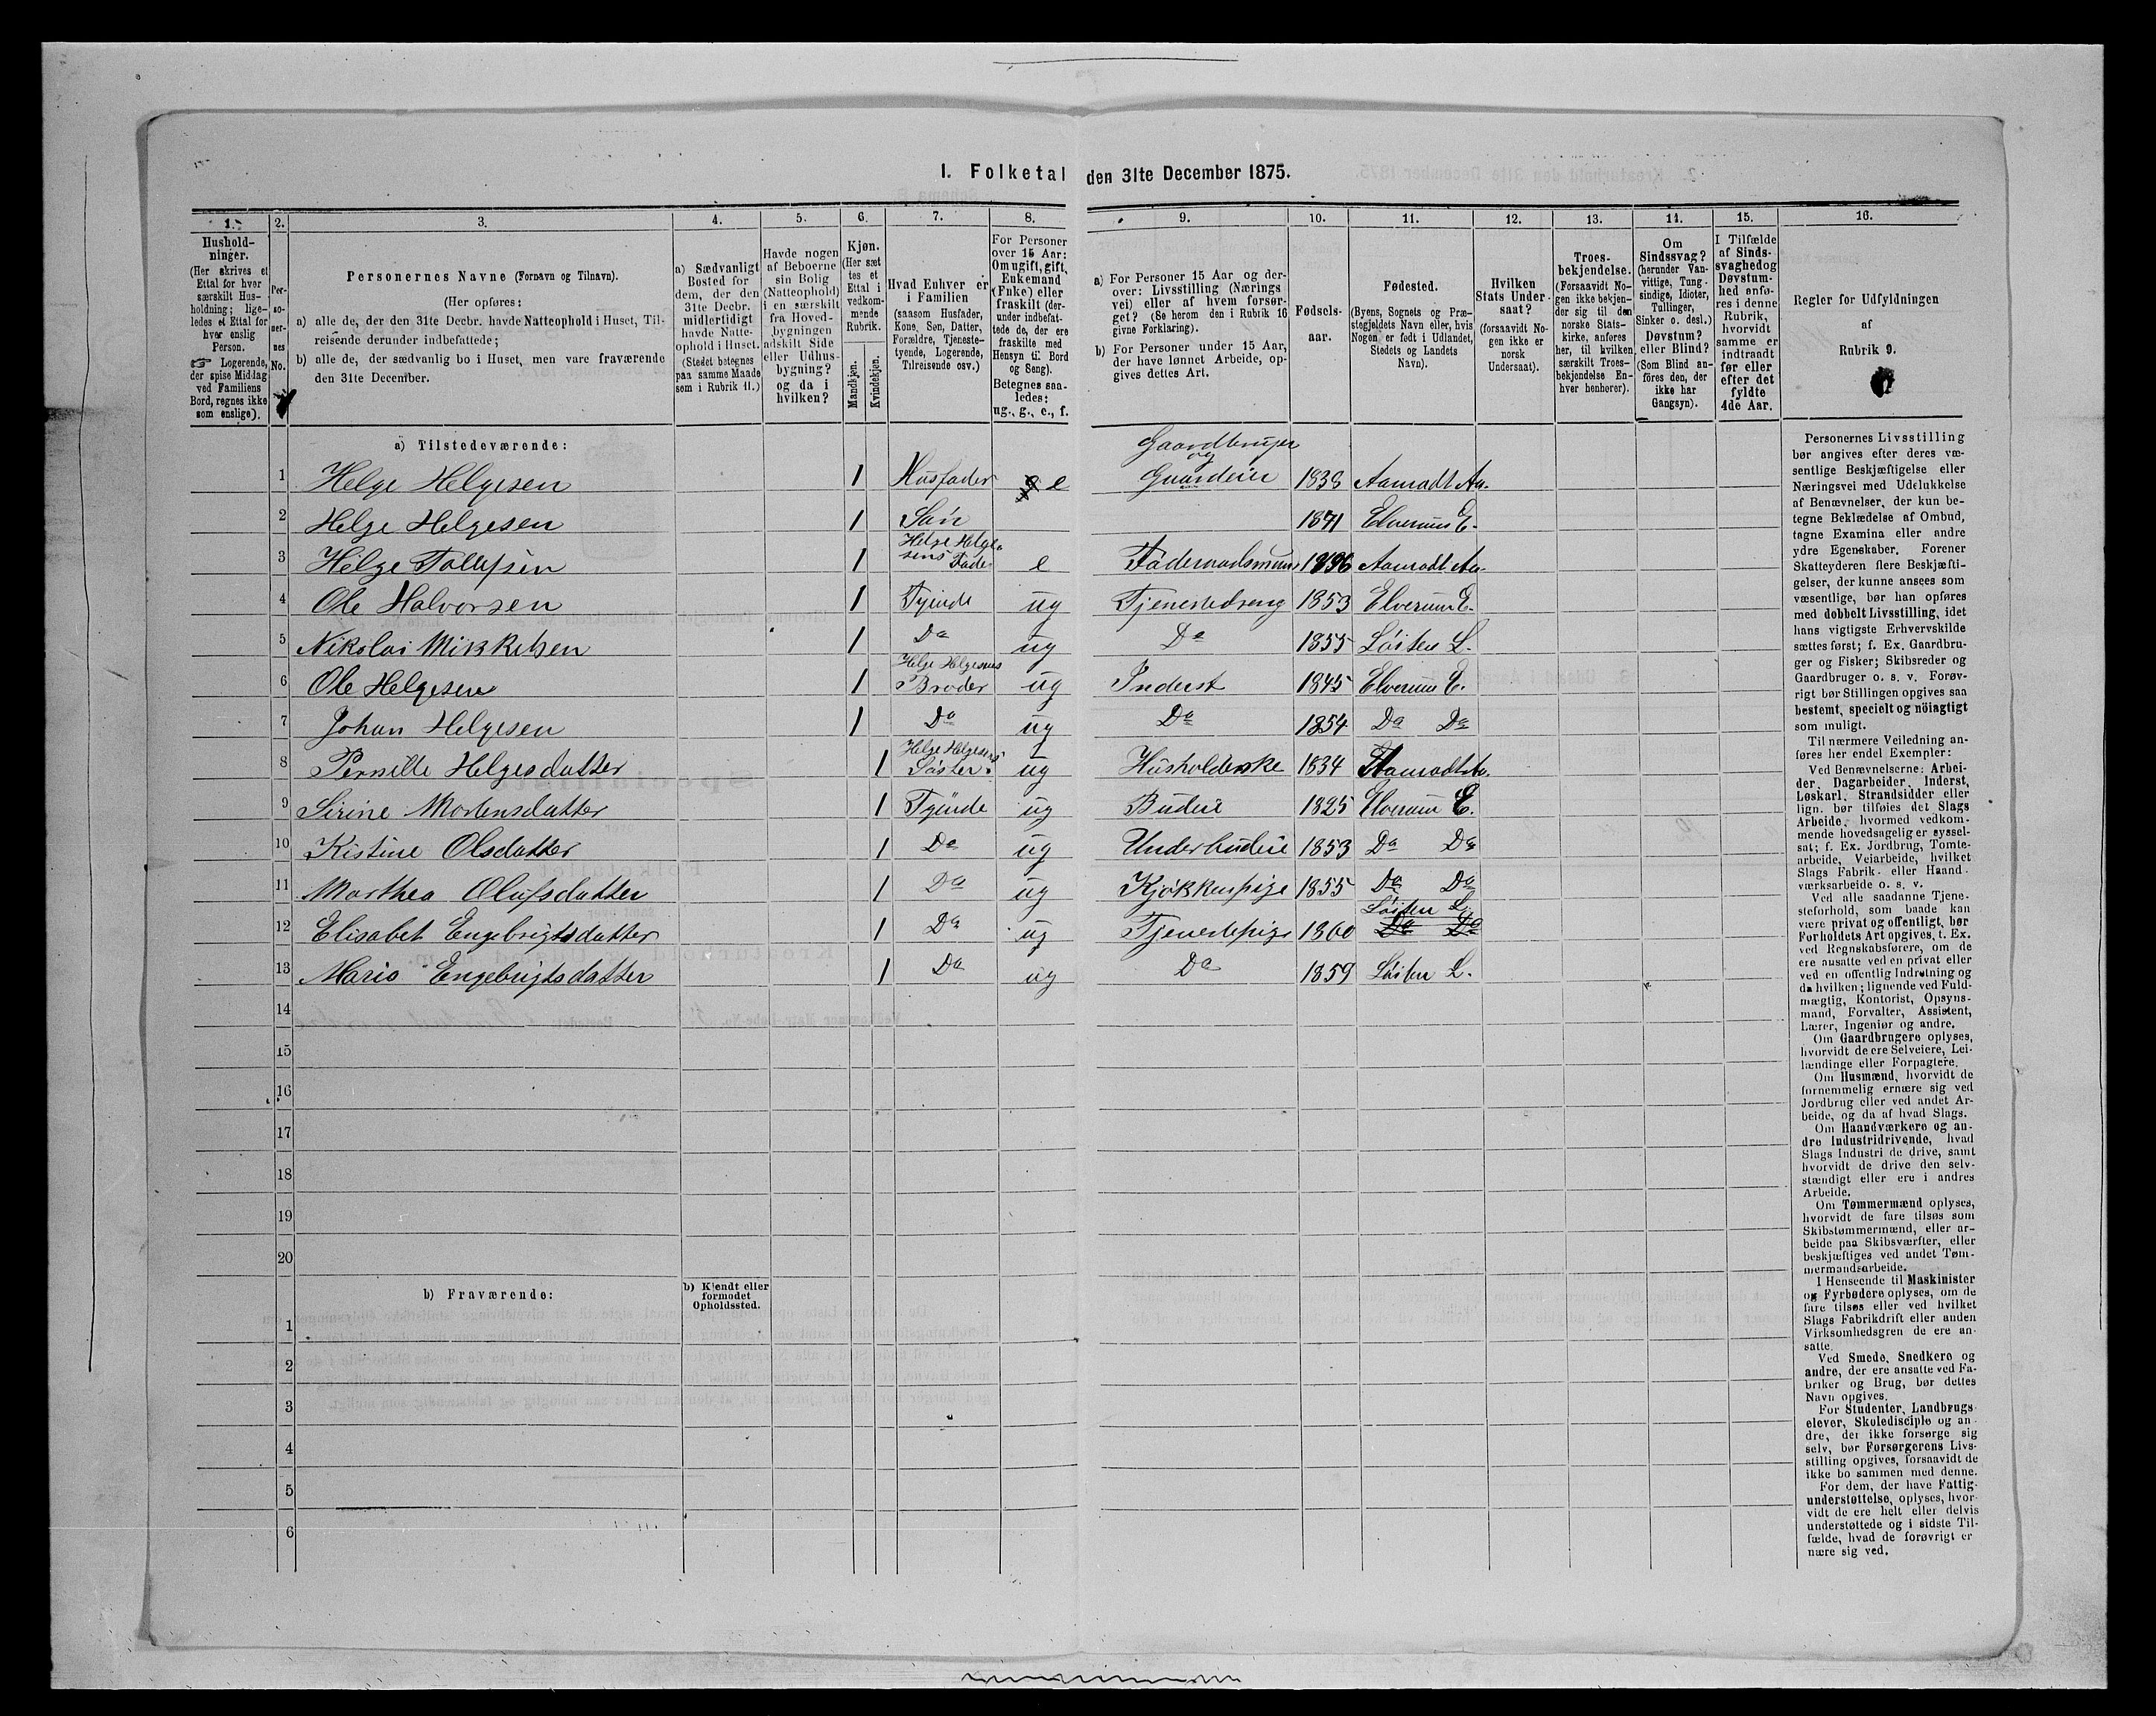 I. Folketal den 31te December 1875.
1. 2. 3. 4. 5. 6. 7. 8. 9. 10. 11. 12. 13. 14. 15. 16.
Hushold-
ninger.
(Her skrives et
Ettal for hver
særskilt Hus-
holdning; lige-
ledes et Ettal for
hver enslig
Person.
☞ Logerende,
der spise Middag
ved Familiens
Bord, regnes ikke
som enslige).
Per-
so-
ner-
nes
No.
Personernes Navne (Fornavn og Tilnavn).
(Her opføres:
a) alle de, der den 31te Decbr. havde Natteophold i Huset, Til-
reisende derunder indbefattede;
b) alle de, der sædvanlig bo i Huset, men vare fraværende
den 31te December.
a) Sædvanligt
Bosted for
dem, der den
31te Decbr.
midlertidigt
havde Natte-
ophold i Huset.
(Stedet betegnes
paa samme Maade
som i Rubrik 11.)
Havde nogen
af Beboerne
sin Bolig
(Natteophold)
i en særskilt
fra Hoved-
bygningen
adskilt Side
eller Udhus-
bygning?
og da i
hvilken?
Kjøn.
(Her sæt
tes et
Ettal i
vedkom-
mende
Rubrik.
Mandkjøn.
Kvindekjøn.
Hvad Enhver er
i Familien
(saasom Husfader,
Kone, Søn, Datter,
Forældre, Tjeneste-
tyende, Logerende,
Tilreisende osv.)
For Personer
over 15 Aar:
Om ugift, gift,
Enkemand
(Enke) eller
fraskilt (der-
under indbefat-
tede de, der ere
fraskilte med
Hensyn til Bord
og Seng).
Betegnes saa-
ledes:
ug., g., e., f.
a) For Personer 15 Aar og der-
over: Livsstilling (Nærings
vei) eller af hvem forsør-
get? (Se herom den i Rubrik 16
givne Forklaring).
b) For Personer under 15 Aar,
der have lønnet Arbeide, op-
gives dettes Art.
Fødsels-
aar.
Fødested.
(Byens, Sognets og Præ-
stegjeldets Navn eller, hvis
Nogen er født i Udlandet,
Stedets og Landets
Navn).
Hvilken
Stats Under-
saat?
(forsaavidt No-
gen ikke er
norsk
Undersaat).
Troes-
bekjendelse.
(Forsaavidt No-
gen ikke bekjen-
der sig til den
norske Stats-
kirke, anføres
her, til hvilken
særskilt Troes-
bekjendelse En-
hver henhører).
Om
Sindssvag?
(herunder Van-
vittige, Tung-
sindige, Idioter,
Tullinger,
Sinker o. desl.)
Døvstum?
eller Blind?
(Som Blind an-
föres den, der
ikke har
Gangsyn).
I Tilfælde
af Sinds-
svaghed og
Døvstum-
hed anfø-
res i denne
Rubrik,
hvorvidt
samme er
indtraadt
før eller
efter det
fyldte
4de Aar.
Regler for Udfyldningen
af
Rubrik 9.
a) Tilstedeværende:
1 Helge Helgesen 1 Husfader e Gaardbruger og Gaardeier 1838 Aamodt Aa.
2 Helge Helgesen 1 Søn 1871 Elverum E.
3 Helge Tollefsen 1 Helge Helge- sens Fader e Föderaadsmand 1796 Aamodt Aa.
4 Ole Halvorsen 1 Tyende ug Tjenestedreng 1853 Elverum E.
5 Nikolai Mikkelsen 1 Do ug Do 1855 Löiten L.
6 Ole Helgesen 1 Helge Helgesens Broder ug Inderst 1845 Elverum E.
7 Johan Helgesen 1 Do ug Do 1854 Do Do
8 Pernille Helgesdatter 1 Helge Helgesens Söster ug Husholderske 1834 Aamodt Aa.
9 Sirine Mortensdatter 1 Tyende ug Budeie 1825 Elverum E.
10 Kistine Olsdatter 1 Do ug Underbudeie 1853 Do Do
11 Marthea Olufsdatter 1 Do ug Kjøkkenpige 1855 Do Do
12 Elisabet Engebrigtsdatter 1 Do ug Tjenestepige 1860 Löiten L. Do Do
13 Maria Engebrigtsdatter 1 Do ug Do 1859 Löiten L.
14
15
16
17
18
19
20
b) Fraværende:
b) Kjendt eller
formodet
Opholdssted.
1
2
3
4
5
6
Personernes Livsstilling
bør angives efter deres væ-
sentlige Beskjæftigelse eller
Næringsvei med Udelukkelse
af Benævnelser, der kun be-
tegne Beklædelse af Ombud,
tagne Examina eller andre
ydre Egenskaber. Forener
Skatteyderen flere Beskjæfti-
gelser, der kunne ansees som
væsentlige, bør han opføres
med dobbelt Livsstilling, idet
hans vigtigste Erhvervskilde
sættes først; f. Ex. Gaardbru-
ger og Fisker; Skibsreder og
Gaardbruger o. s. v. Forøv-
rigt bør Stillingen opgives saa
bestemt, specielt og nöiagtigt
som muligt.
Til nærmere Veiledning an-
føres her endel Exempler:
Ved Benævnelserne: Arbei-
der, Dagarbeider, Inderst,
Løskarl, Strandsidder eller
lign. bør tilføies det Slags
Arbeide, hvormed vedkom-
mende hovedsagelig er syssel-
sat; f. Ex. Jordbrug, Tomte-
arbeide, Veiarbeide, hvilket
Slags Fabrik- eller Haand-
værksarbeide o. s. v.
Ved alle saadanne Tjene-
steforhold, som baade kan
være privat og offentligt, bør
Forholdets Art opgives, f. Ex.
ved Regnskabsførere, om de
ere ansatte ved en privat eller
ved en offentlig Indretning og
da hvilken; lignende ved Fuld-
mægtig, Kontorist, Opsyns-
mand, Forvalter, Assistent,
Lærer, Ingeniør og andre.
Om Gaardbrugere oplyses,
hvorvidt de ere Selveiere, Lei-
lændinge eller Forpagtere.
Om Husmænd, hvorvidt de
fornemmelig ernære sig ved
Jordbrug eller ved andet Ar-
beide, og da af hvad Slags.
Om Haandværkere og an-
dre Industridrivende, hvad
Slags Industri de drive, samt
hvorvidt de drive den selv-
stændigt eller ere i andres
Arbeide.
Om Tømmermænd oplyses,
hvorvidt de fare tilsøs som
Skibstømmermænd, eller ar-
beide paa Skibsværfter, eller
beskjæftiges ved andet Tøm-
mermandsarbeide.
I Henseende til Maskinister
og Fyrbødere oplyses, om de
fare tilsøs eller ved hvilket
Slags Fabrikdrift eller anden
Virksomhedsgren de ere an-
satte.
Ved Smede, Snedkere og
andre, der ere ansatte ved Fa-
briker og Brug, bør dettes
Navn opgives.
For Studenter, Landbrugs-
elever, Skoledisciple og an-
dre, der ikke forsørge sig
selv, bør Forsørgerens Livs-
stilling opgives, forsaavidt de
ikke bo sammen med denne.
For dem, der have Fattig-
understøttelse, oplyses, hvor-
vidt de ere helt eller delvis
understøttede og i sidste Til-
fælde, hvad de forøvrigt er
nære sig ved.